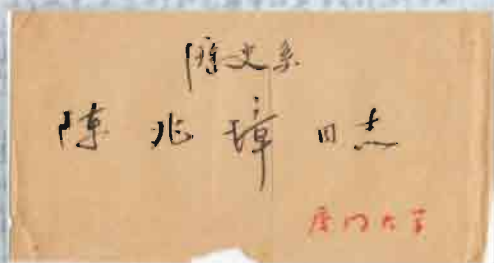 历史系
陈兆璋同志
厦门大学